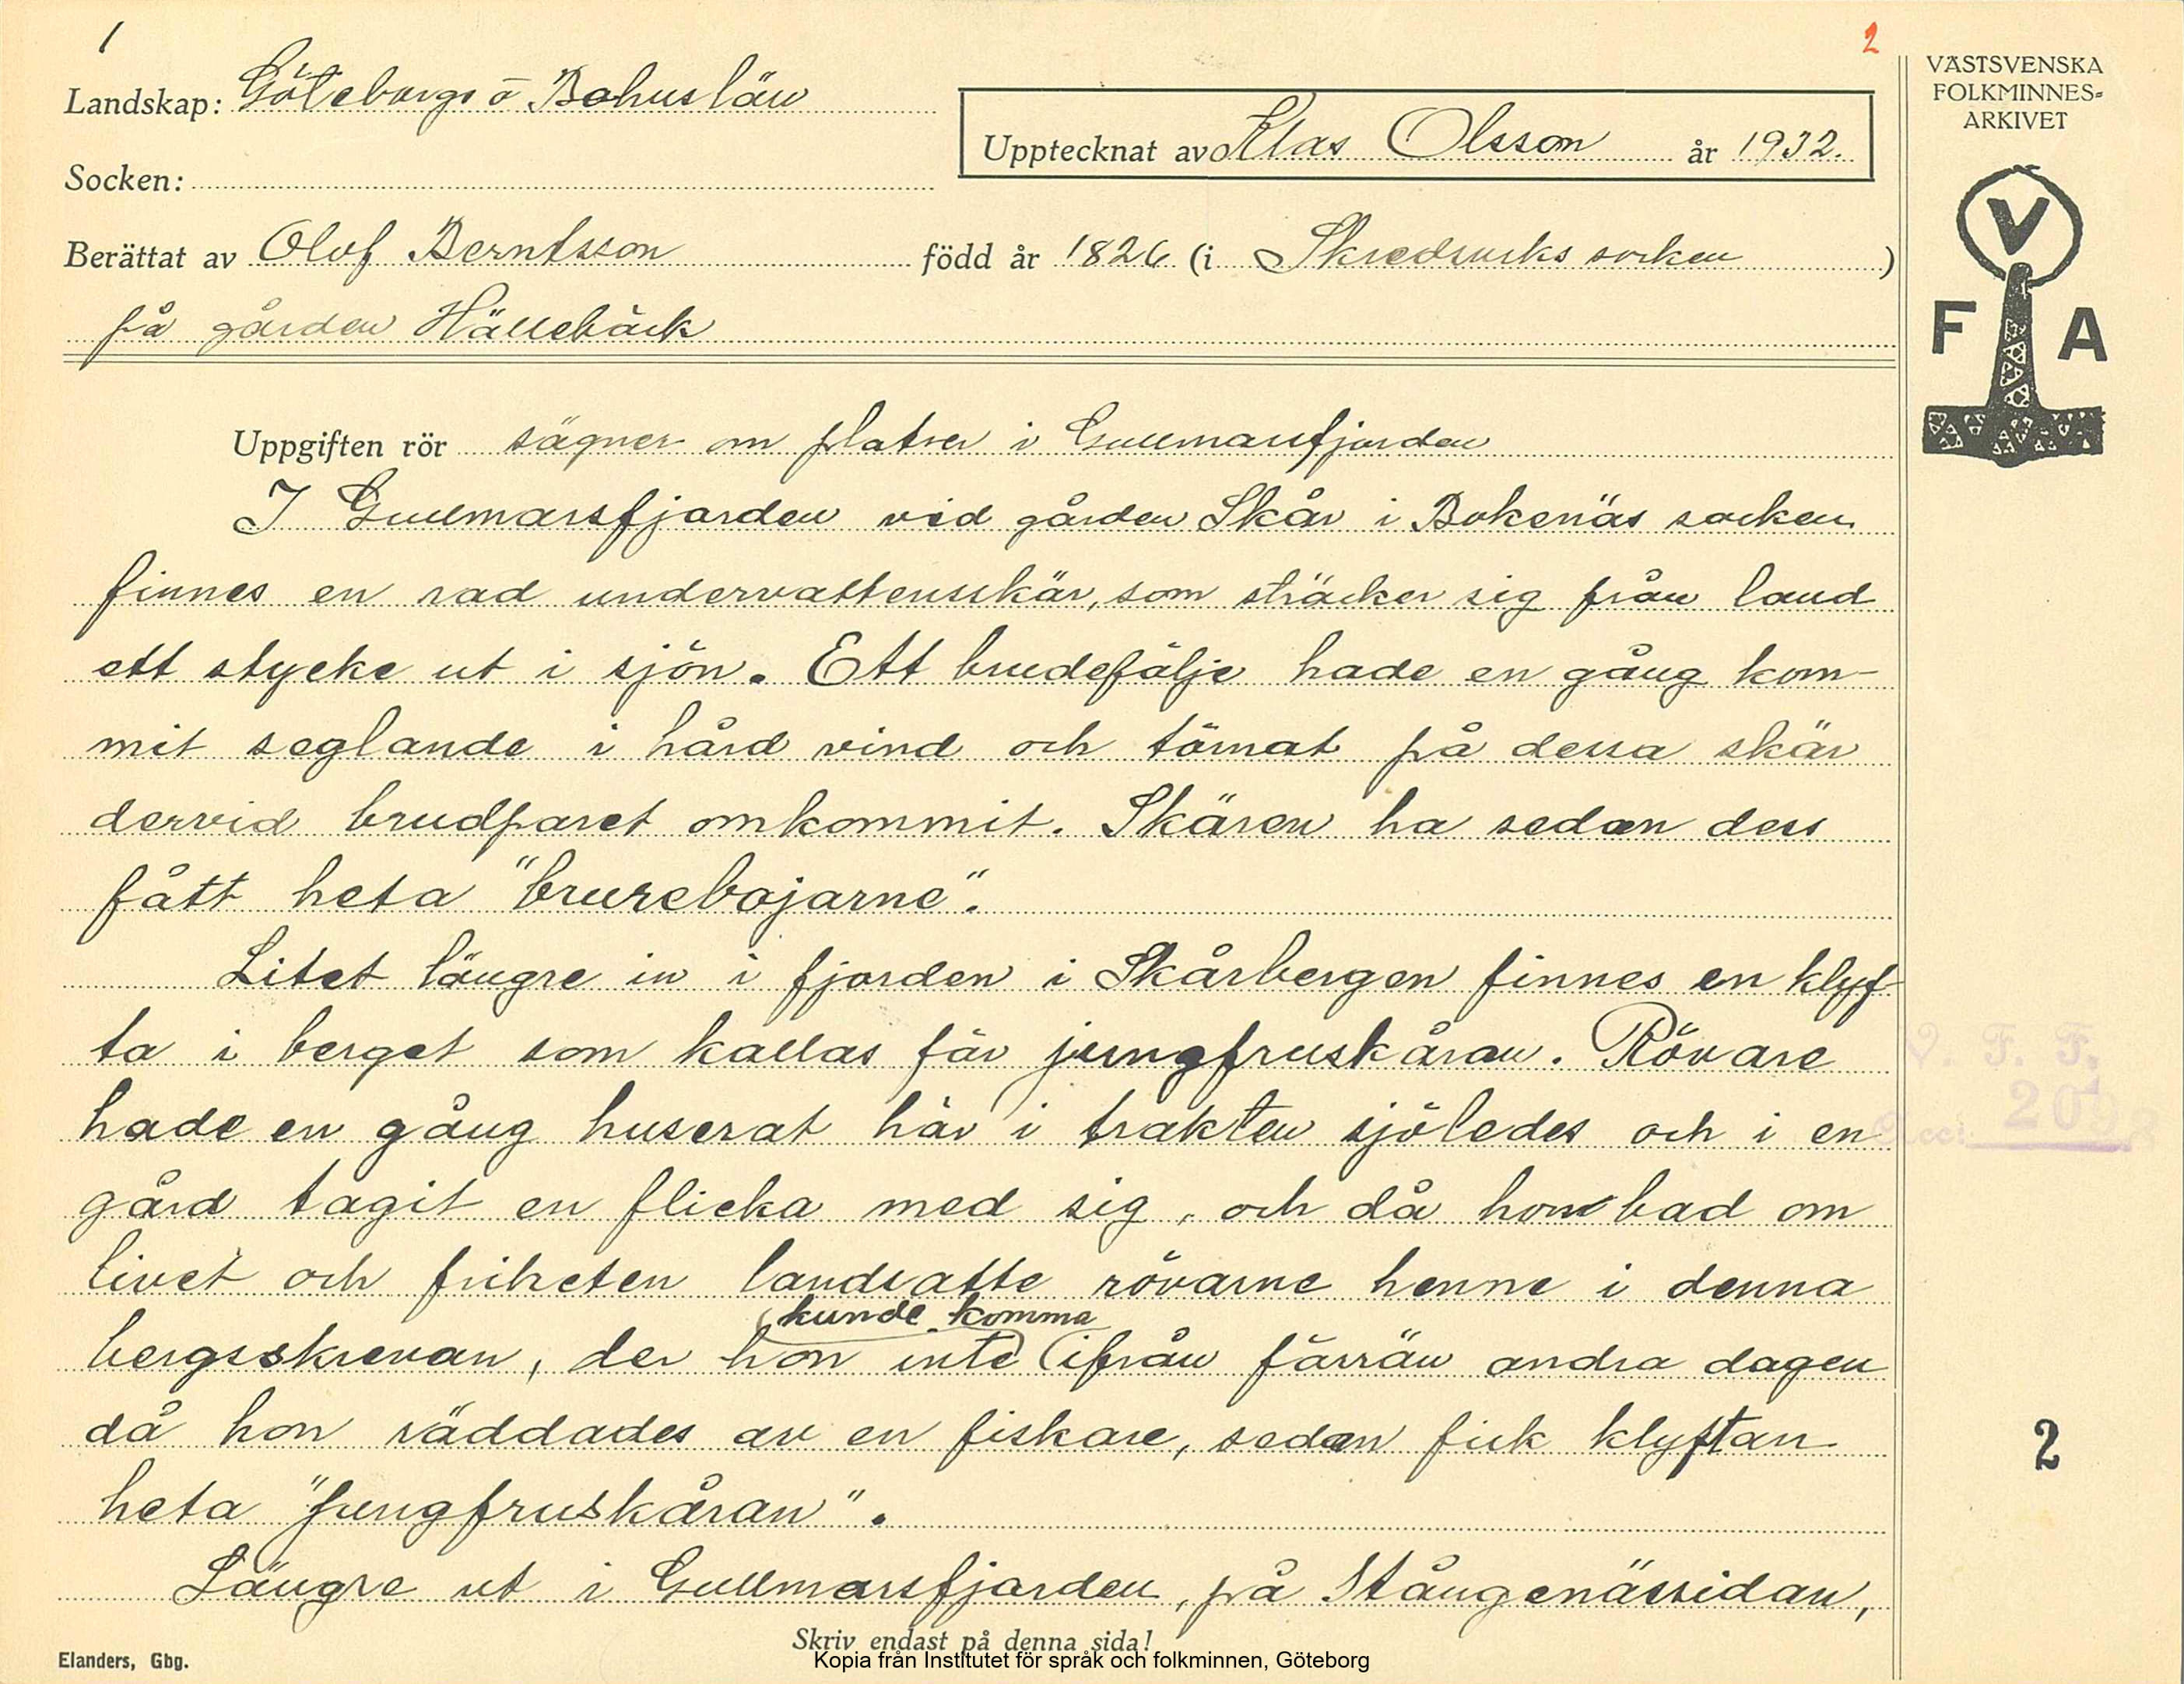 1
2
Landskap: Göteborgs o Bohuslän
Upptecknat av Klas Olsson år 1932.
Socken:
Berättat av Olof Berntsson född år 1826 (i Skredsviks socken)
på gården Hällebäck
VÄSTSVENSKA
FOLKMINNES-
ARKIVET
V
F A
Uppgiften rör sägner om platser i Gullmarsfjorden
I Gullmarsfjorden vid gården Skår i Bokenäs socken
finnes en rad undervattensskär, som sträcker sig från land
ett stycke ut i sjön. Ett brudefölje hade en gång kom-
mit seglande i hård vind och törnat på dessa skär
dervid brudparet omkommit. Skären ha sedan dess
fått heta "brurebojarne".
Litet längre in i fjorden i Skårbergen finnes en klyf-
ta i berget som kallas för jungfruskåran. Rövare
hade en gång huserat här i trakten sjöledes och i en
gård tagit en flicka med sig, och då hon bad om
livet och friheten landsatte rövarne henne i denna
kunde komma
bergsskrevan, der hon inte ifrån förrän andra dagen
då hon räddades av en fiskare, sedan fick klyftan
heta "Jungfruskåran".
Längre ut i Gullmarsfjorden, på Stångenässidan,
V. F. F.
Acc.
2
Skriv endast på denna sida!
Elanders, Gbg.
Kopia från Institutet för språk och folkminnen, Göteborg